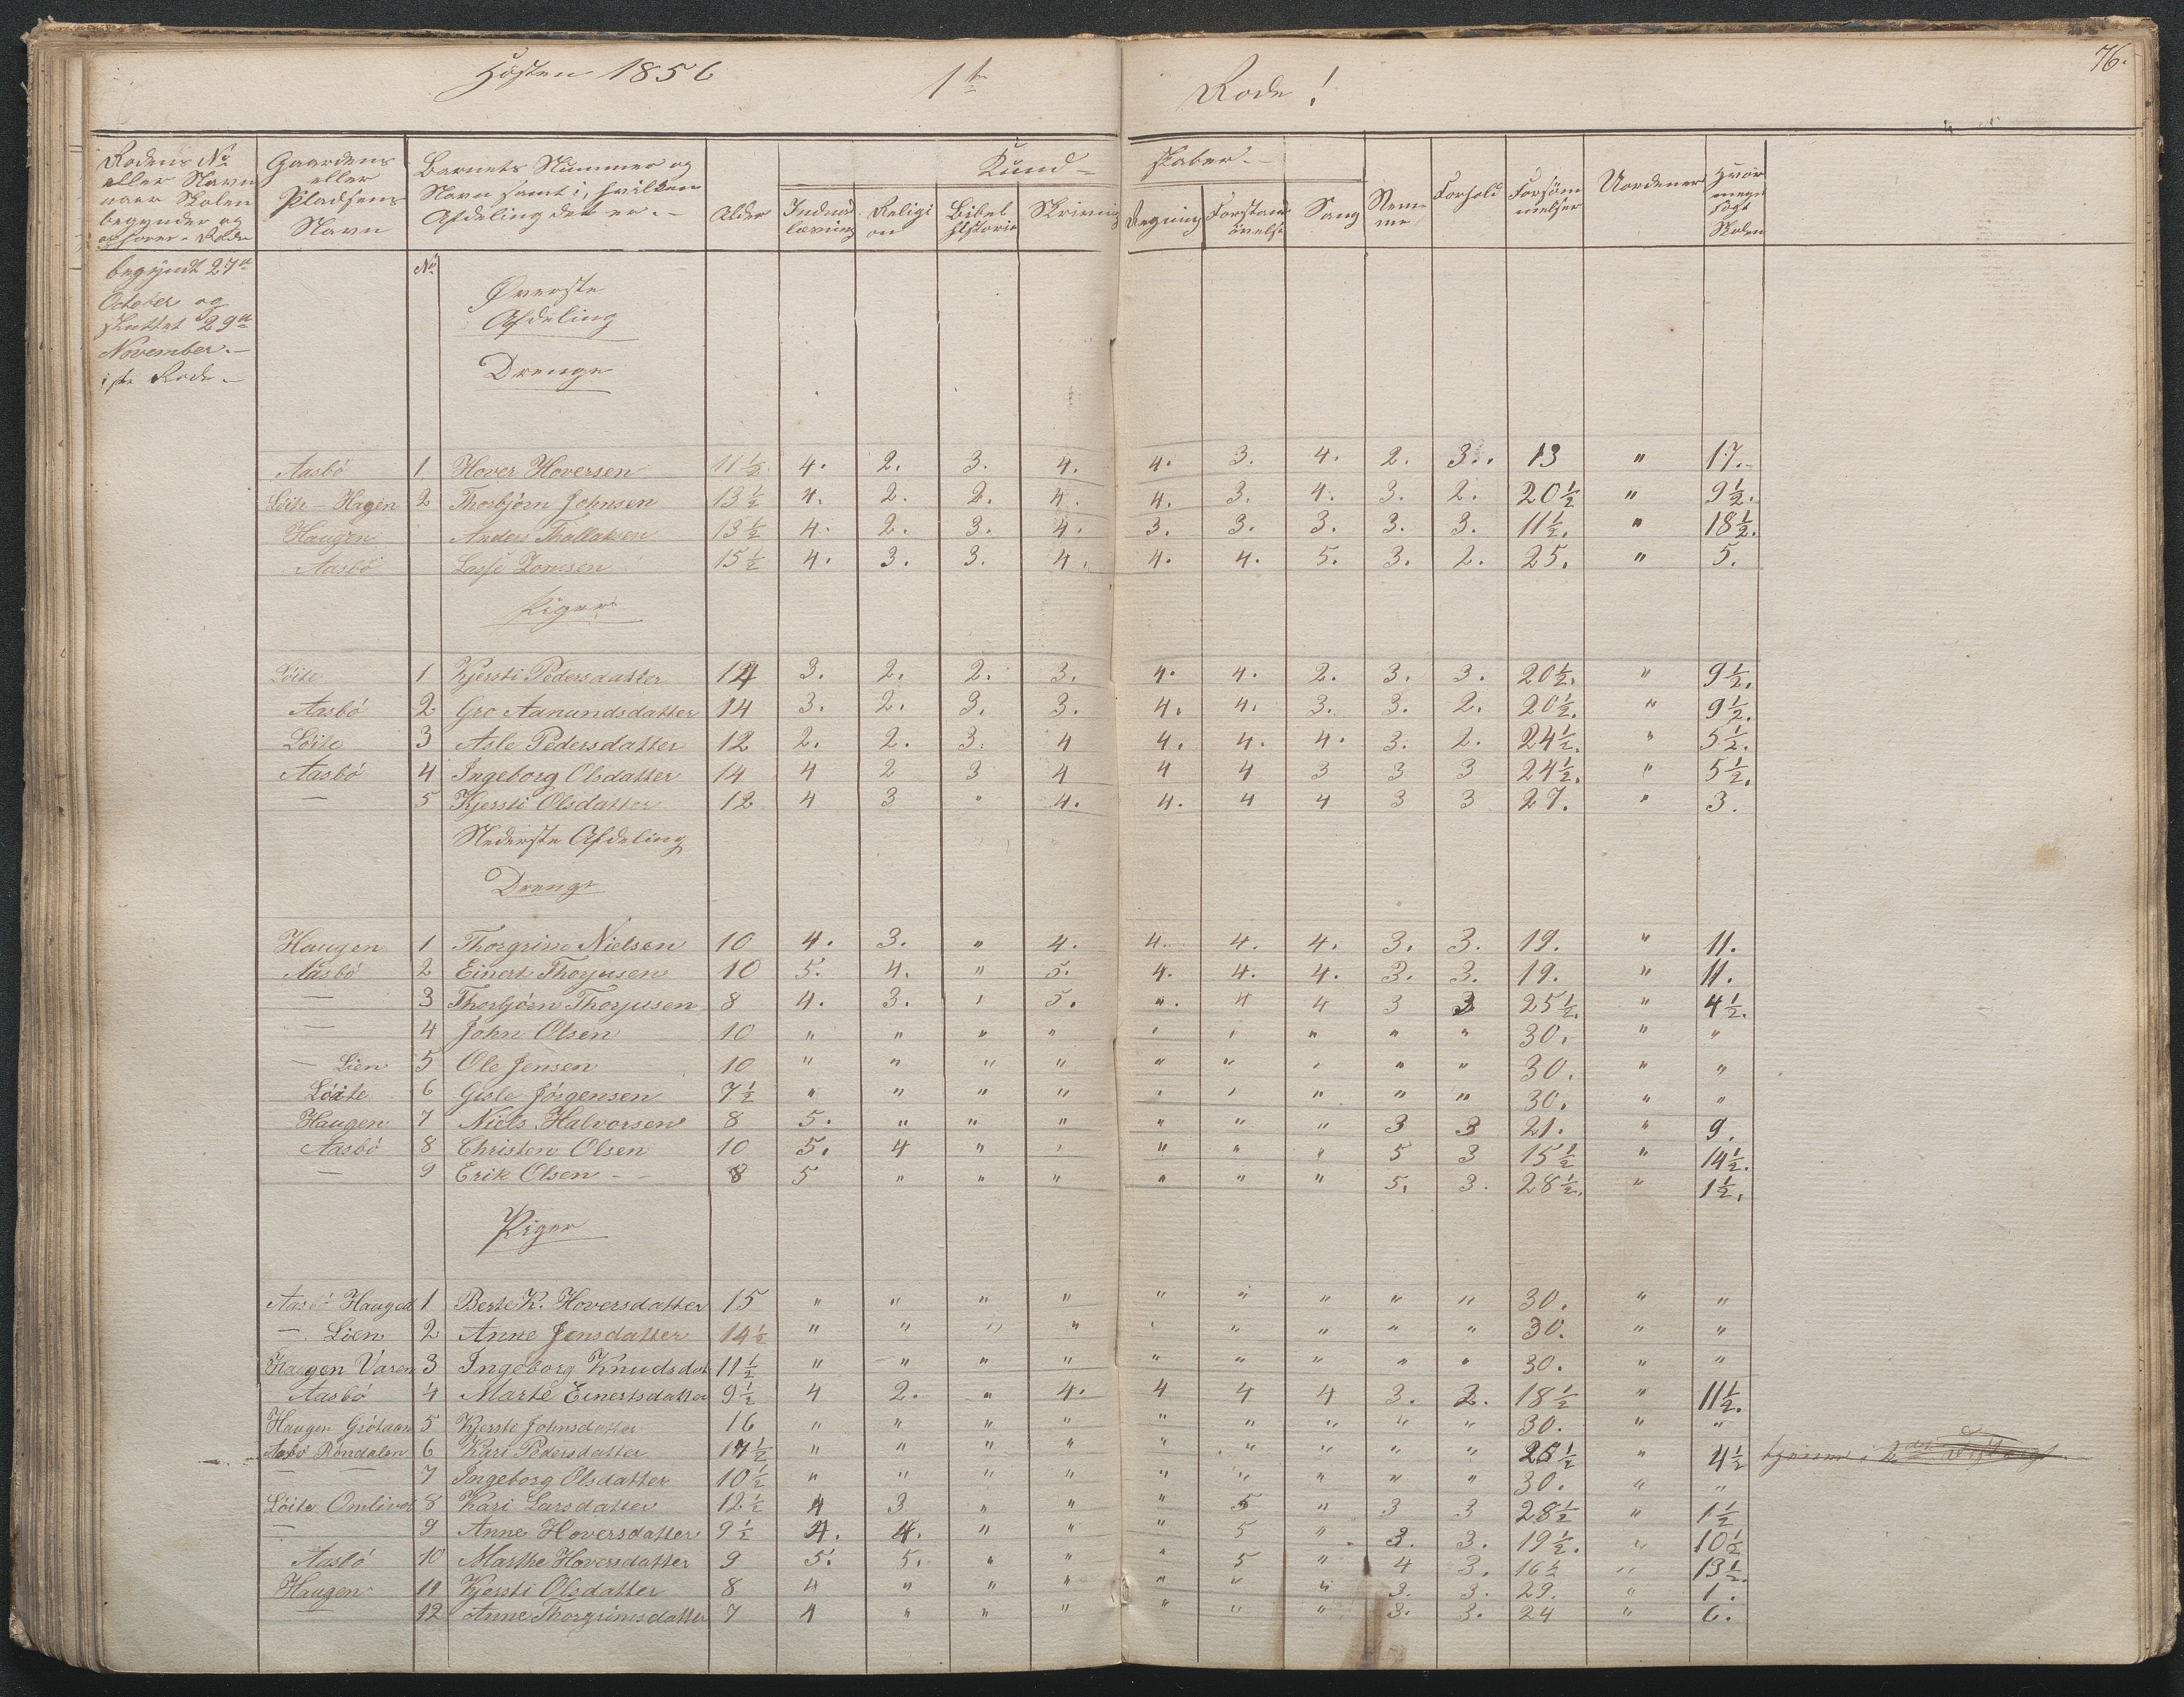 Hösten 1856 1te Rode!
76.
Rodens No eller Navn naar Skolen begynder og ophører. Rode
Gaardens eller Pladsens Navn
Barnets Nummer og Navn samt i hvilken Afdeling det er. -
Alder
Kund- skaber. -
Indenadslæsning
Religion
Bibelhistorie
Skrivning
Regning
Forstandsövelse
Sang
Nemme
Forhold
Forsömmelser
Uordener
Hvor meget sögt Skolen
begyndt 27de
October og
sluttet 29de
November. -
1ste Rode. -
No
Øverste
Afdeling
Drenge
Aasbö 1. Hover Hoversen 11½ 4. 2. 3. 4. 4. 3. 4. 2. 3. 13 " 17.
Löite - Hagen 2 Thorbjörn Johnsen 13½ 4. 2. 2. 4. 4. 3. 4. 3. 2. 20½ " 9½.
Haugen Anders Thollaksen 13½ 4. 2. 3. 4. 3. 3. 3. 3. 3. 11½. " 18½.
Aasbö Lasse Tomsen 15½ 4. 3. 3. 4. 4. 4. 5. 3. 2. 25. " 5.
Piger
Löite 1 Kjersti Pedersdatter 14 3. 2. 2. 3. 4. 4. 2. 3. 3. 20½. " 9½.
Aasbö 2 Gro Aanundsdatter 14 3. 2. 3. 3. 4. 4. 3. 3. 2. 20½. " 9½.
Löite 3 Asle Pedersdatter 12 2. 2. 3. 4 4. 4. 4. 3. 2. 24½. " 5½.
Aasbö 4 Ingeborg Olsdatter 14 4 2 3 4 4 4 3 3 3 24½. " 5½.
— 5 Kjersti Olsdatter 12 4 3 " 4. 4. 4 4 3 3 27. " 3.
Nederste Afdeling
Drenge
Haugen 1 Thorgrim Nielsen 10 4. 3. " 4. 4. 4. 4. 3. 3. 19. " 11.
Aasbö 2 Einert Thorjusen 10 5. 4. " 5. 4. 4. 4. 3. 3. 19. " 11.
— 3 Thorbjörn Thorjusen 8 4. 3. " 5. ". 4 4 3 3 25½. " 4½.
— 4 John Olsen 10 " " " " " " " " " 30. " "
— Lien 5 Ole Jensen 10 " " " " " " " " " 30. " "
Löite 6 Gisle Jörgensen 7½ " " " " " " " " " 30. " "
Haugen 7 Niels Halvorsen 8 5. " " " " " " 3 3 21. " 9.
Aasbö 8 Christen Olsen 10 5. 4 " " " " " 5 3 15½ " 14½.
— 9 Erik Olsen - - 8 5 " " " " " " 5. 3. 28½. " 1½.
Piger
Aasbö Hauged 1 Berte K. Hoversdatter 15 " " " " " " " " " 30. " "
— Lien 2 Anne Jensdatter 14½ " " " " " " " " " 30. " "
Haugen Varen 3 Ingeborg Knudsdat 11½ " " " " " " " " " 30. " "
Aasbö 4 Marte Einertsdatter 9½ 4 2. " 4. 4 4 4 3. 2. 18½ " 11½.
Haugen 5 Kjersti Johnsdatter 16 " " " " " " " " " 30. " "
Aasbö Röndalen 6 Kari Pedersdatter 17½ " " " " " " " " " 25½ " 4½
— — 7 Ingeborg Olsdatter 10½ " " " " " " " " " 30. " "
Löite Omlivet 8 Kari Larsdatter 12½ 4 3 " " " 5 " 3 3 28½ " 1½
— 9 Anne Hoversdatter 9½ 4. 4. " " " 5 " 3. 3. 19½. " 10½
Aasbö 10 Marthe Hoversdatter 9 5. 5. " " " 5 " 4 3. 16½ " 13½.
Haugen 11 Kjersti Olsdatter 8 4 " " " " " " 3. 3. 29. " 1.
— 12 Anne Thorgrimsdatter 7 4 " " " " " " 3. 3. 24 " 6.